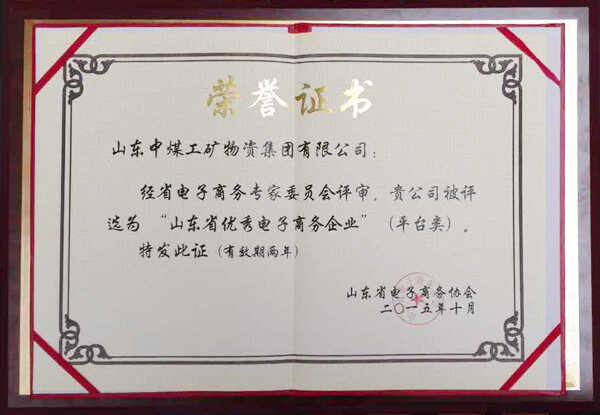 荣誉证书
山东中煤工矿物资集团有限公司：
经省电子商务专家委员会评审，贵公司被评
选为“山东省优秀电子商务企业”（平台类）。
特发此证（有效期两年）
山东省电子商务协会
二〇一五年十月